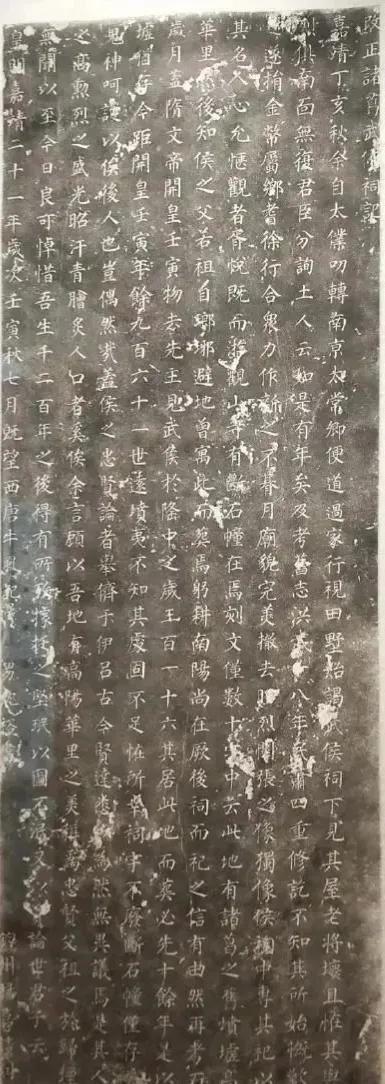 改正諸葛武侯祠記
嘉靖丁亥秋余自太僕叨轉南京太常卿便道過家行視田墅始謁武侯祠下見其屋老將壞且惟其
列供南面無復君臣分詢土人云如是有年矣及考舊志洪武十八年重修記不知其所始慨然
遂捐金幣屬鄉耆徐行合眾力作新之不朞月廟貌完美撤去昭烈關張之像獨像侯廟中專其祀以
其名人心允愜觀者胥悅既而觀山寺有斷石幢在焉刻文僅數十字中云此地有諸葛之舊墳墟
華里然後知侯之父若祖自瑯琊避地曾寓此而葬焉躬耕南陽尚在厥後祠而祀之信有由然再考石
歲月蓋隋文帝開皇壬寅物去先主見武侯於隆中之歲三百一十六其居此地而葬必先十餘年是以
墟猶存今距開皇壬寅年餘九百六十一世遠墳夷不知其處固不足怪所幸祠宇不廢斷石幢僅存
鬼神呵護以俟後人也豈偶然哉蓋侯之忠賢論者舉儕于伊呂古今賢達為然無異議焉是其人
之高勲烈之盛光昭汗青膾炙人口者奚俟余言顧以吾地有高陽華里之美實為忠賢父祖之旅歸
無聞以至今日良可悼惜吾生千二百年之後得有所據托之堅珉以圖不泯又以論世君子云
皇明嘉靖二十一年歲次壬寅秋七月既望西唐牛